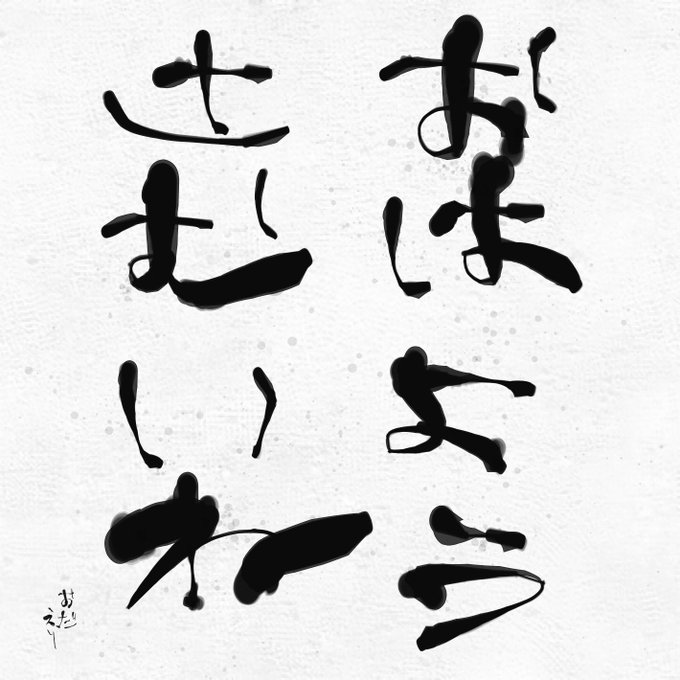 おはよう
さむいね
おたり
えり